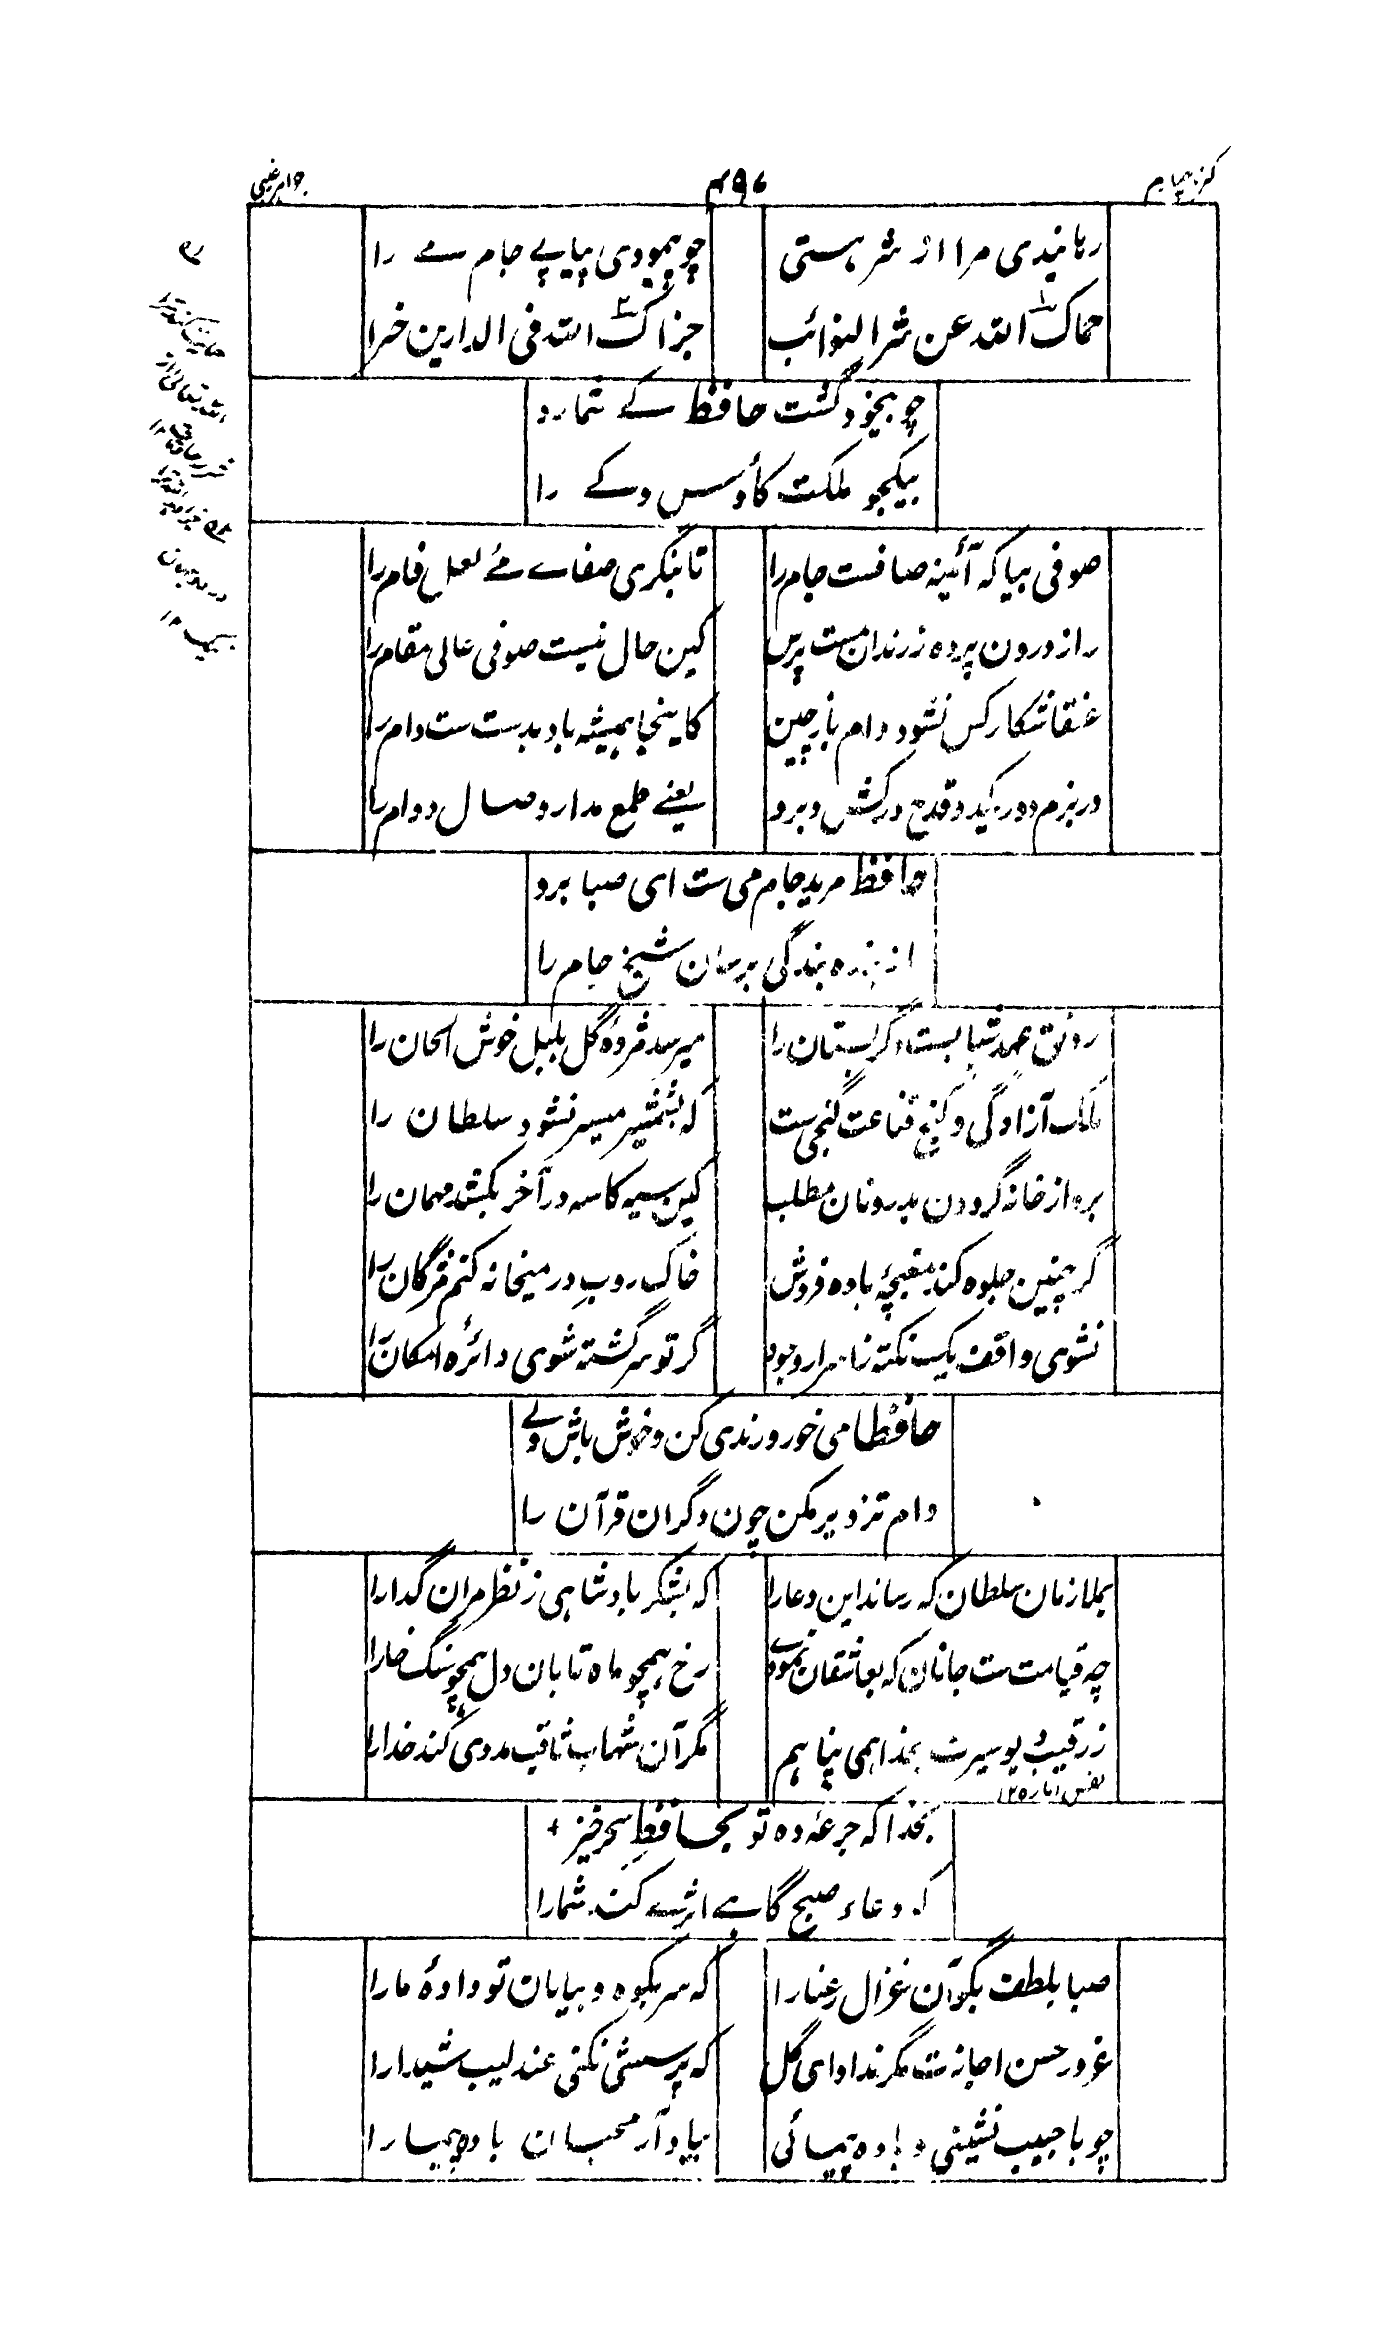 ۴۹۷
رہانیدی مرا از شر ہستی
چو پیمودی پیاپے جام مے را
حماک اللہ عن شر النوائب
جزاک اللہ فی الدارین خیرا
چو بیخود گشت حافظ کے شمارد
بیکجو ملکت کاؤس و کے را
صوفی بیا کہ آئینہ صافست جام را
تا بنگری صفاے مے لعل فام را
راز درون پردہ ز رندان مست پرس
کین حال نیست صوفی عالی مقام را
عنقا شکار کس نشود دام باز چین
کاینجا ہمیشہ باد بدست ست دام را
در بزم دور یکدو قدح درکش و برو
یعنے طمع مدار وصال دوام را
حافظ مرید جام می ست ای صبا برو
از بندہ بندگی برسان شیخ جام را
رونق عہد شبابست دگر بستان را
میرسد مژدۂ گل بلبل خوش الحان را
ملک آزادگی و کنج قناعت گنجی ست
کہ بشمشیر میسر نشود سلطان را
برو از خانہ گردون بدر و نان مطلب
کین سیہ کاسہ در آخر بکشد مہمان را
گر چنین جلوہ کند مغبچۂ بادہ فروش
خاک روب در میخانہ کنم مژگان را
نشوی واقف یک نکتہ ز اسرار وجود
گر تو سرگشتہ شوی دائرہ امکان را
حافظا می خور و رندی کن و خوش باش ولے
دام تزویر مکن چون دگران قرآن را
بملازمان سلطان کہ رساند این دعا را
کہ بشکر بادشاہی ز نظر مران گدا را
چہ قیامت ست جانان کہ بعاشقان نمودے
رخ ہمچو ماہ تابان دل ہمچو سنگ خارا
ز رقیب دیو سیرت بخدا ہمی پناہم
مگر آن شہاب ثاقب مددی کند خدا را
نفس امارہ ۱۲
بخدا کہ جرعۂ دہ تو بحافظ سحر خیز
کہ دعاء صبح گاہے اثرے کند شمارا
صبا بلطف بگو آن غزال رعنا را
کہ سر بکوہ و بیابان تو دادۂ ما را
غرور حسن اجازت مگر نداد ای گل
کہ پرسشی نکنی عندلیب شیدا را
چو با حبیب نشینی و بادہ پیمائی
بیاد آر محبان بادہ پیما را